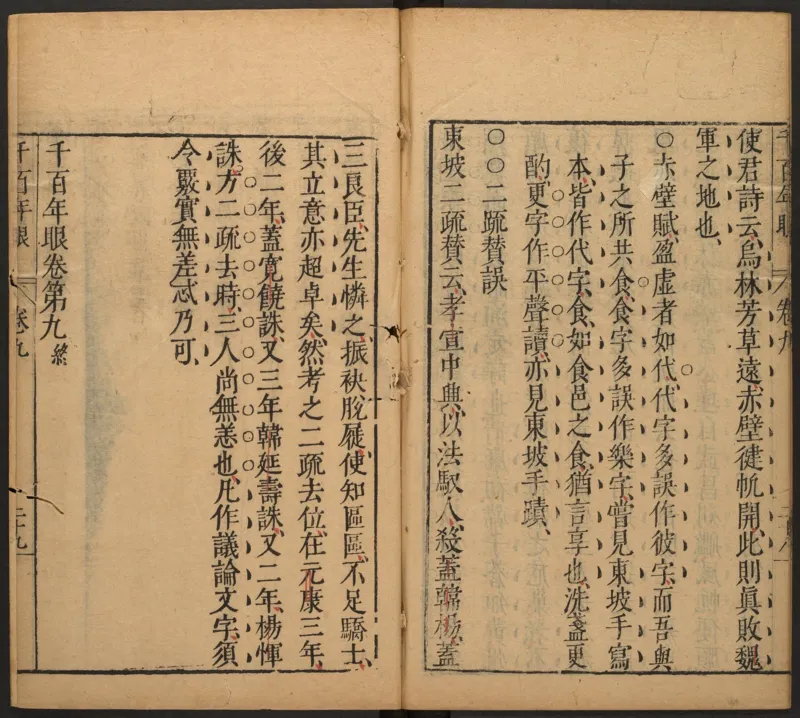 使君詩云烏林芳草遠赤壁健帆開此則眞敗魏
軍之地也
○赤壁賦盈虛者如代代字多誤作彼字而吾與
子之所共食食字多誤作樂字嘗見東坡手寫
本皆作代字食如食邑之食猶言享也洗盞更
酌更字作平聲讀亦見東坡手蹟
○○二疏贊誤
東坡二疏贊云孝宣中興以法馭人殺蓋韓楊蓋
三良臣先生憐之振袂脫屣使知區區不足驕士
其立意亦超卓矣然考之二疏去位在元康三年
後二年蓋寬饒誅又三年韓延壽誅又二年楊惲
誅方二疏去時三人尚無恙也凡作議論文字須
令覈實無差忒乃可
千百年眼卷第九 終
千百年眼 卷九 二十九